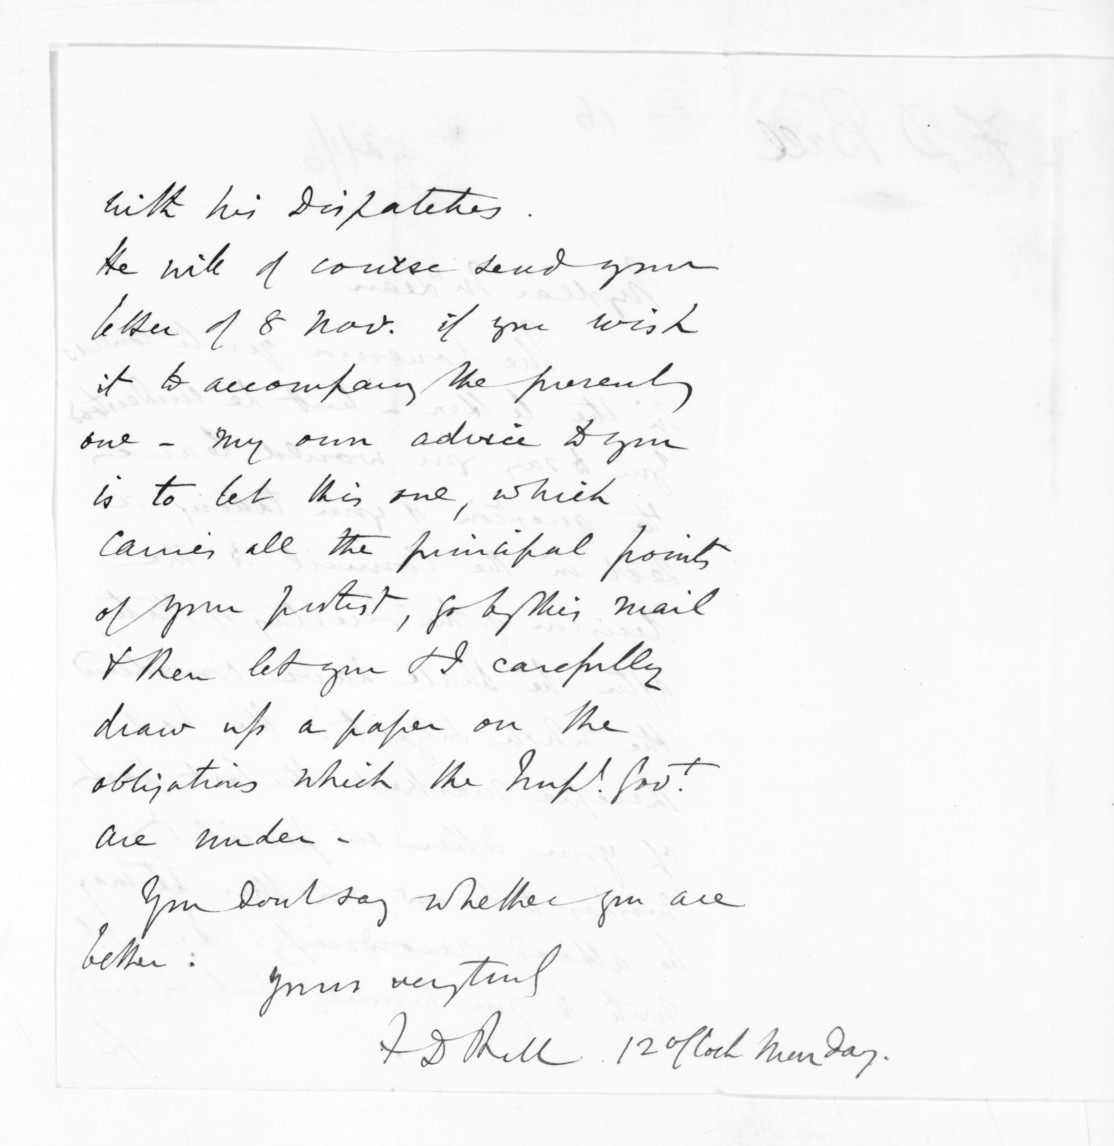 with his Dispatches.
He will of course send your
letter of 8 Nov. if you wish
it to accompany the present
one - My own advice to you
is to let this one, which
carries all the principal points
of your protest, go by this mail
& then let you & I carefully
draw up a paper on the
obligations which the Impl. Govt.
are under -
You dont say whether you are
better:
Yours very truly
F D Bell 12 oClock Monday.